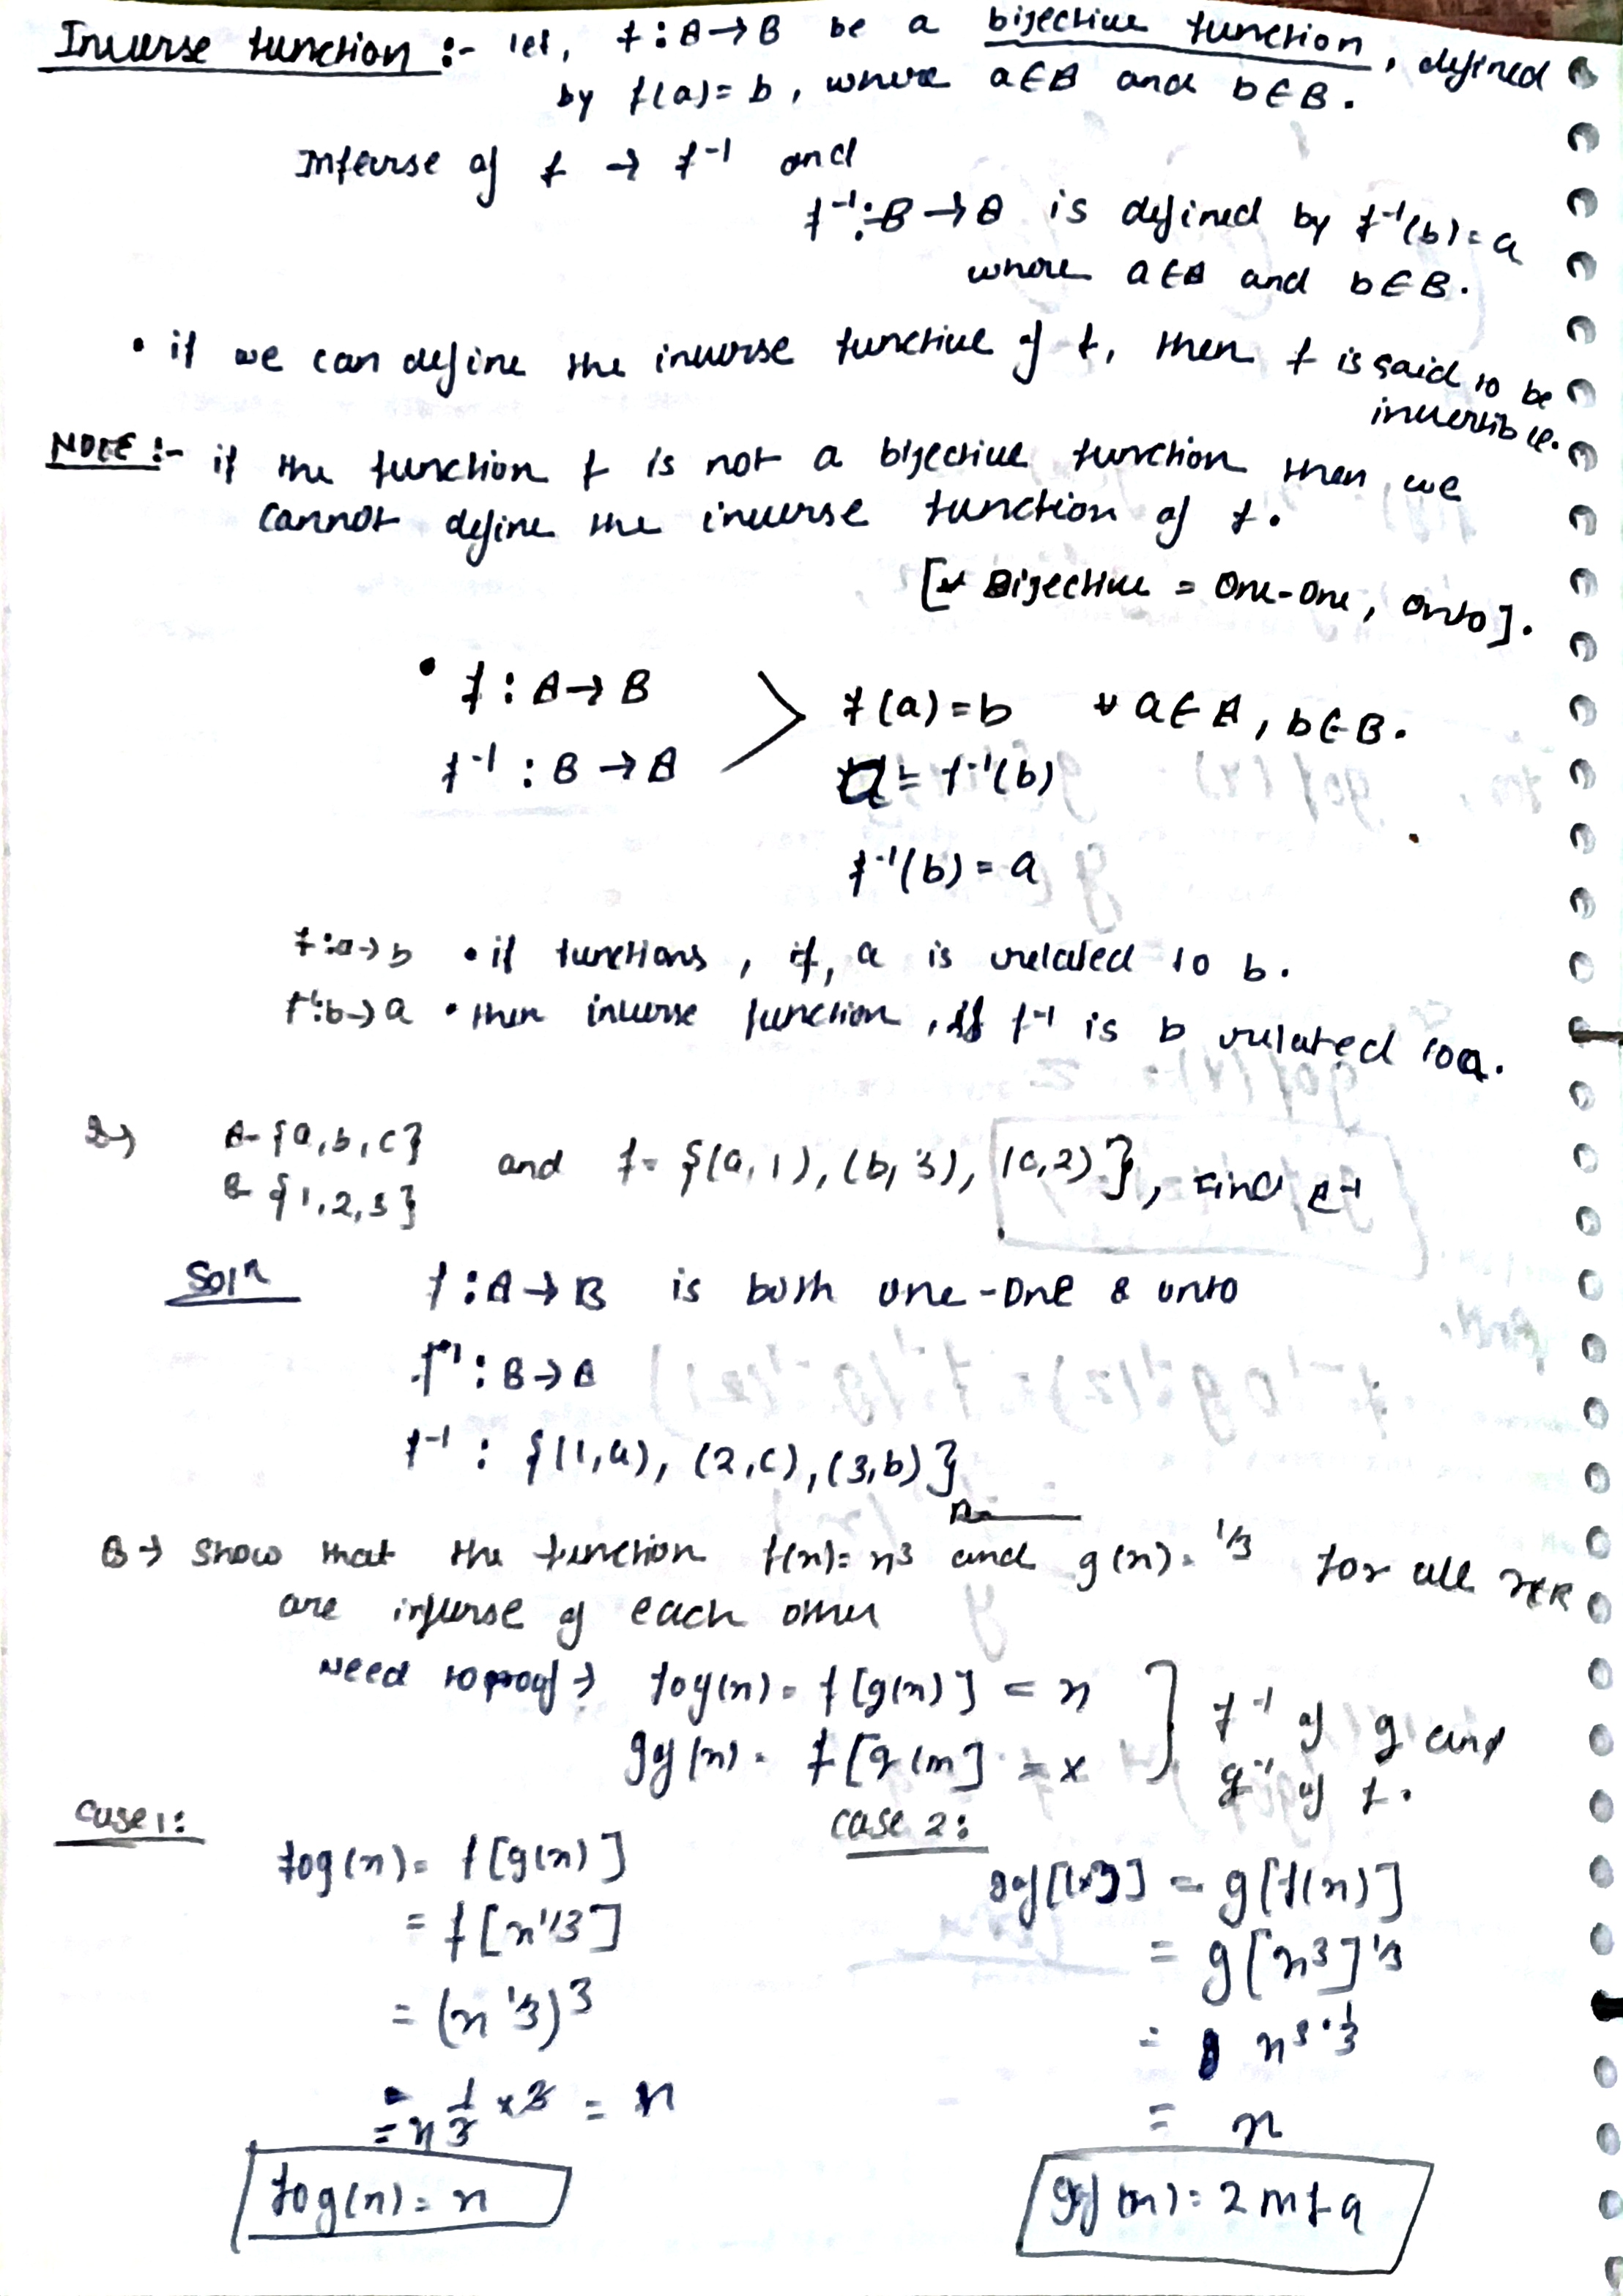 Inverse function :- let, f : A → B be a bijective function, defined
by f(a) = b, where a ∈ A and b ∈ B.
Inferse of f → f⁻¹ and
f⁻¹ : B → A is defined by f⁻¹(b) = a
where a ∈ A and b ∈ B.
• if we can define the inverse functive of f, then f is said to be
invertible.
NOTE :- if the function f is not a bijective function then we
cannot define the inverse function of f.
[* Bijective = One-One, onto].
• f : A → B
f(a) = b ∀ a ∈ A, b ∈ B.
f⁻¹ : B → A
a = f⁻¹(b)
f⁻¹(b) = a
f : a → b • if functions, if, a is related to b.
f⁻¹: b → a • then inverse function, if f⁻¹ is b related to a.
Q→ A = {a, b, c}
B = {1, 2, 3}
and f = {(a, 1), (b, 3), (c, 2)}, Find f⁻¹
Solⁿ f : A → B is both one-one & onto
f⁻¹ : B → A
f⁻¹ : {(1, a), (2, c), (3, b)}
Q→ Show that the function f(x) = x³ and g(x) = ¹/³ for all x ∈ R
are inferse of each other
Need to proof → fog(x) = f[g(x)] = x
gf(x) = f[g(x] = x
f⁻¹ of g and
g⁻¹ of f.
Case 1:
fog(x) = f[g(x)]
= f[x^1/3]
= (x^1/3)³
= x 1/3 × 3 = x
fog(x) = x
Case 2:
= g[f(x)]
= g[x³]^1/3
= x^3·1/3
= x